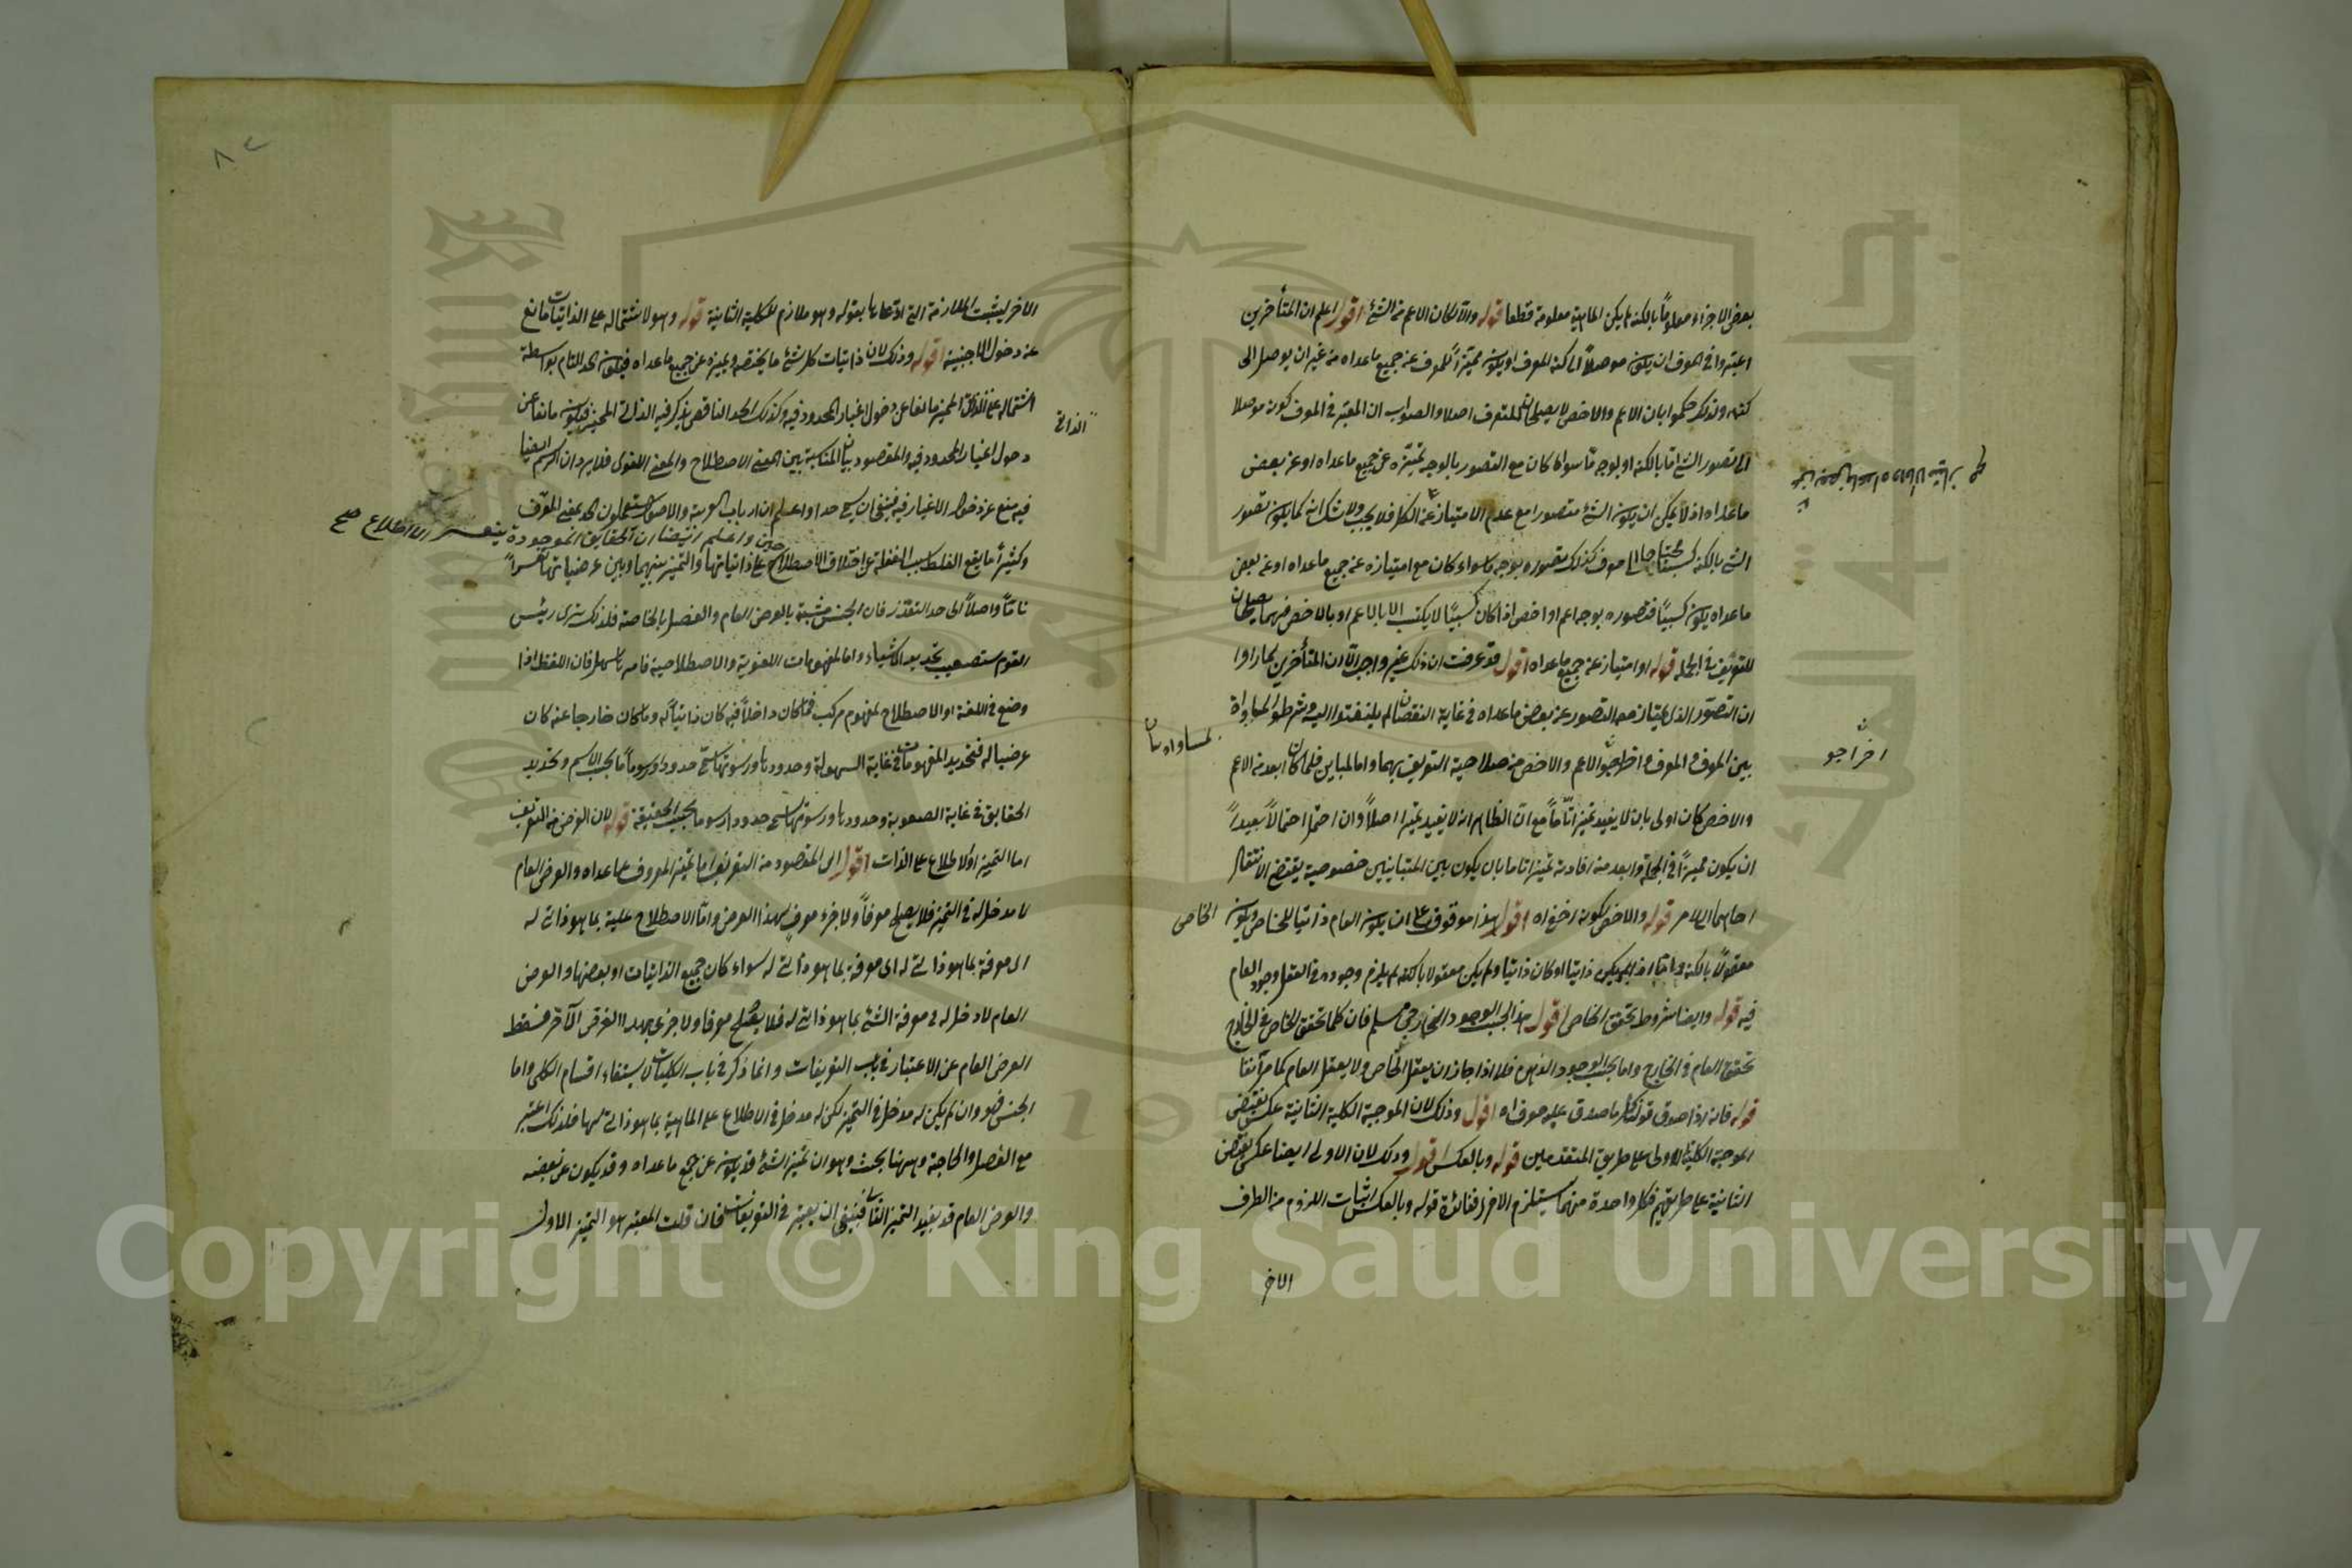 بعض الاجزاء معلوماً بالكنه لم يكن الماهية معلومة قطعا قوله والا لكان الاعم من الشئ اقول اعلم ان المتأخرين
اعتبروا في المعرف ان يكون موصلاً الى كنه المعرف او يكون مميّزاً للمعرف عن جميع ما عداه من غير ان يوصل الى
كنهه ولذلك حكموا بان الاعم والاخص لا يصلحان للتعريف اصلا والصواب ان المعتبر في المعرف كونه موصلا
الى تصور الشئ اما بالكنه او بوجه مّا سواء كان مع التصور بالوجه تميّزه عن جميع ما عداه او عن بعض
ما عداه اذ لا يمكن ان يكون الشئ متصورا مع عدم الامتياز عن الكل فلا يجب ولا شك انه كما يكون تصور
الشئ بالكنه كسبيا محتاجا الى معرف كذلك تصوره بوجه ما سواء كان مع امتيازه عن جميع ما عداه او عن بعض
ما عداه يكون كسبيًا فتصوره بوجه اعم او اخص اذا كان كسبيًا لا يكتسب الا بالاعم او بالاخص فهما يصلحان
للتعريف في الجملة قوله او امتيازه عن جميع ما عداه اقول قد عرفت ان ذلك غير واجب الّا ان المتأخرين لما راوا
ان التصوّر الذي يمتاز معه التصور عن بعض ما عداه في غاية النقصان لم يلتفتوا اليه وشرطوا المساواة
بين المعرف والمعرف واخرجوا الاعم والاخص من صلاحية التعريف بهما واما المباين فلما كان ابعد من الاعم
والاخص كان اولى بان لا يفيد تميزا تاّماً مع انّ الظاهر انه لا يفيد تميزا اصلاً وان احتمل احتمالاً بعيداً
ان يكون مميزاً في الجملة وابعد منه افادته تميزا تاما بان يكون بين المتباينين خصوصية يقتضي الانتقال
احاهما الى الامر قوله والاخص لكونه اخفى اه اقول هذا موقوف على ان يكون العام ذاتيا للخاص ويكون الخاص
معقولاً بالكنه واما اذا لم يكن ذاتيا او كان ذاتيا ولم يكن معقولا بالكنه لم يلزم وجوده في العقل وجود العام
فيه قوله وايضا شروط تحقق الخاص اقول هذا بحسب الوجود الخارجي مسلم فان كلما تحقق الخاص في الخارج
تحقق العام في الخارج واما بحسب الوجود الذهني فلا اذا جاز ان يعقل الخاص ولا يعقل العام كما مرّ آنفا
قوله فانه اذا صدق قولنا كل ما صدق عليه المعرف اه اقول وذلك لان الموجبة الكلية الثانية عكس نقيض
الموجبة الكلية الاولى على طريق المتقدمين قوله وبالعكس اقول وذلك لان الاولى ايضا عكس نقيض
الثانية على طريقهم فكل واحدة منهما يستلزم الاخرى ففائدة قوله وبالعكس اثبات اللزوم من الطرف
الاخر
اخراجو
الاخر ليثبت الملازمة التي ادّعاها بقوله وهو ملازم للكلية الثانية قوله وهو لاشتماله على الذاتيات مانع
عن دخول الاجنبية اقوله وذلك لان ذاتيات كل شئ ما يختصه ويميزه عن جميع ما عداه فيكون الحد التام بواسطة
اشتماله على الذاتي المميز مانعا عن دخول اغيار المحدود فيه وكذلك الحد الناقص يذكر فيه الذاتي المميز فيكون مانعا عن
الذاتي
دخول اغيار المحدود فيه والمقصود بيان المناسبة بين المعنى الاصطلاحي والمعنى اللغوي فلا يرد ان الرسم ايضا
فيه منع عن دخول الاغيار فيه فينبغي ان يسمى حدا واعلم ان ارباب العربية والاصول يستعملون الحد بمعنى المعرّف
وكثيراً ما يقع الغلط بسبب الغفلة عن اختلاف الاصطلاحين واعلم ايضا ان الحقايق الموجودة يتعسر الاطلاع صح
على ذاتياتها والتميز بينهما وبين عرضياتها تعسراً
تامّاً واصلاً الى حد التعذر فان الجنس مشتبه بالعرض العام والفصل بالخاصة فلذلك ترى رئيس
القوم يستصعب تحديد الاشياء واما المفهومات اللغوية والاصطلاحية فامرها سهل فان اللفظ اذا
وضع في اللغة او الاصطلاح لمفهوم مركب فما كان داخلاً فيه كان ذاتياً له وما كان خارجا عنه كان
عرضيا له فتحديد المفهومات في غاية السهولة وحدودها ورسومها تسمى حدوداً ورسوماً بحسب الاسم وتحديد
الحقايق في غاية الصعوبة وحدودها ورسومها تسمى حدودا ورسوما بحسب الحقيقة قوله لان الغرض من التعريف
اما التميز او الاطلاع على الذات اقول اي المقصود من التعريف اما تميز المعروف عما عداه والعرض العام
لا مدخل له في التميز فلا يصلح معرفاً ولا جزء معرفٍ لهذا الغرض وامّا الاصطلاح عليه بما هو ذاتي له
اى معرفة بما هو ذاتي له اى معرفة بما هو ذاتي له سواء كان جميع الذاتيات او بعضها والعرض
العام لا دخل له في معرفة الشئ بما هو ذاتي له فلا يصلح معرفا ولا جزء بهذا الغرض الآخر فسقط
العرض العام عن الاعتبار في باب التعريفات وانما ذكر في باب الكليات لاستيفاء اقسام الكلي واما
الجنس فهو وان لم يكن له مدخل في التميز لكن له مدخل في الاطلاع على الماهية بما هو ذاتي لها فلذلك اعتبر
مع الفصل والخاصة وههنا بحث وهو ان تميز الشئ قد يكون عن جميع ما عداه وقد يكون عن بعضه
والعرض العام قد يفيد التميز الثاني فينبغي ان يعتبر في التعريفات فان قلت المعتبر هو التميز الاول
Copyright © King Saud University